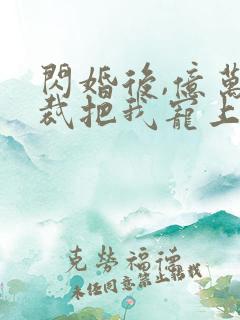 閃婚後,億萬
裁把我寵上
克勞福德
未任同意禁止轉載